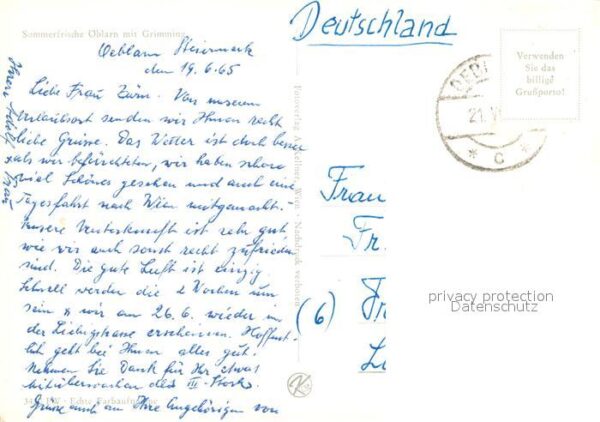 Sommerfrische Öblarn mit Grimming
Oeblarn Steiermark
den 19.6.65
Liebe Frau Zürn. Von unserem
Urlaubsort senden wir Ihnen recht
liebe Grüsse. Das Wetter ist doch besser
als wir befürchteten, wir haben schon
viel Schönes gesehen und auch eine
Tagesfahrt nach Wien mitgemacht.
Unsere Unterkunft ist sehr gut
wie wir auch sonst recht zufrieden
sind. Die gute Luft ist einzig
Schnell werden die 2 Wochen um
sein & wir am 26.6. wieder in
der Liebigstrasse erscheinen. Hoffent-
lich geht bei Ihnen alles gut.
Nehmen Sie Dank für Ihr etwas
mitüberwachen des III. Stocks.
Grüsse auch an Ihre Angehörigen von
Ihrer
& Frau
Echte Farbaufnahme
Wien Nachdruck verboten
Deutschland
21. VI
* C *
Verwenden
Sie das
billige
Grußporto!
Frau
Fr.
(6)
privacy protection
Datenschutz